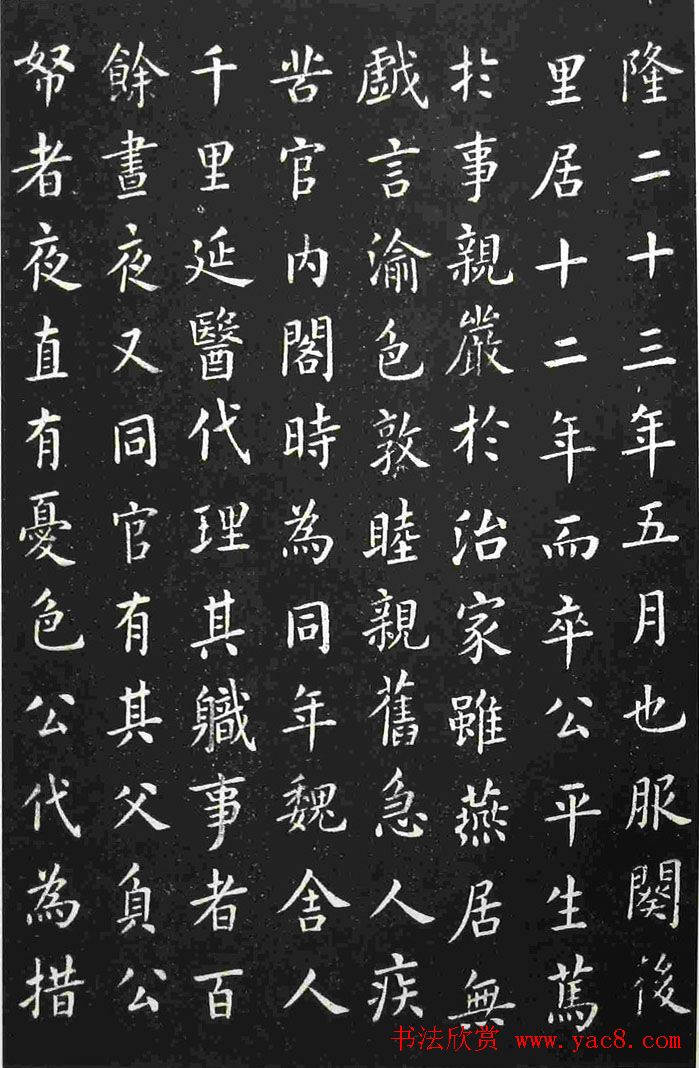 隆二十三年五月也服闋後
里居十二年而卒公平生篤
於事親嚴於治家雖燕居無
戯言渝色敦睦親舊急人疾
苦官内閣時為同年魏舍人
千里延醫代理其軄事者百
餘晝夜又同官有其父負公
帑者夜直有憂色公代為措
书法欣赏 www.yac8.com